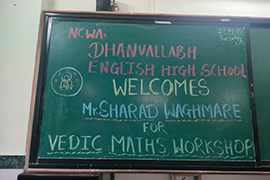 NCWA's
DHANVALLABH
ENGLISH HIGH SCHOOL
WELCOMES
Mr. SHARAD WAGHMARE
FOR
VEDIC MATHS WORKSHOP